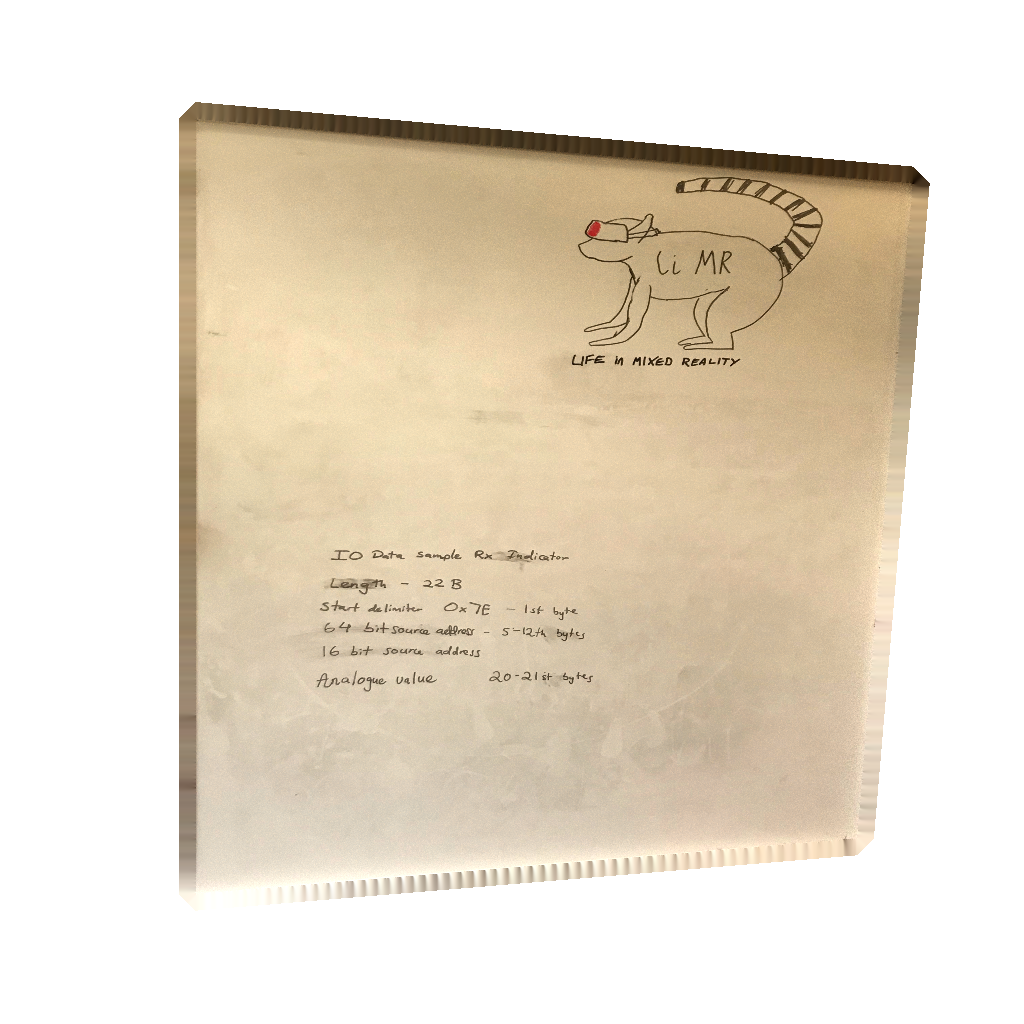 Li MR
LIFE in MIXED REALITY
IO Data sample Rx Indicator
Length - 22 B
Start delimiter 0x7E - 1st byte
64 bit source address - 5-12th bytes
16 bit source address
Analogue value 20-21st bytes